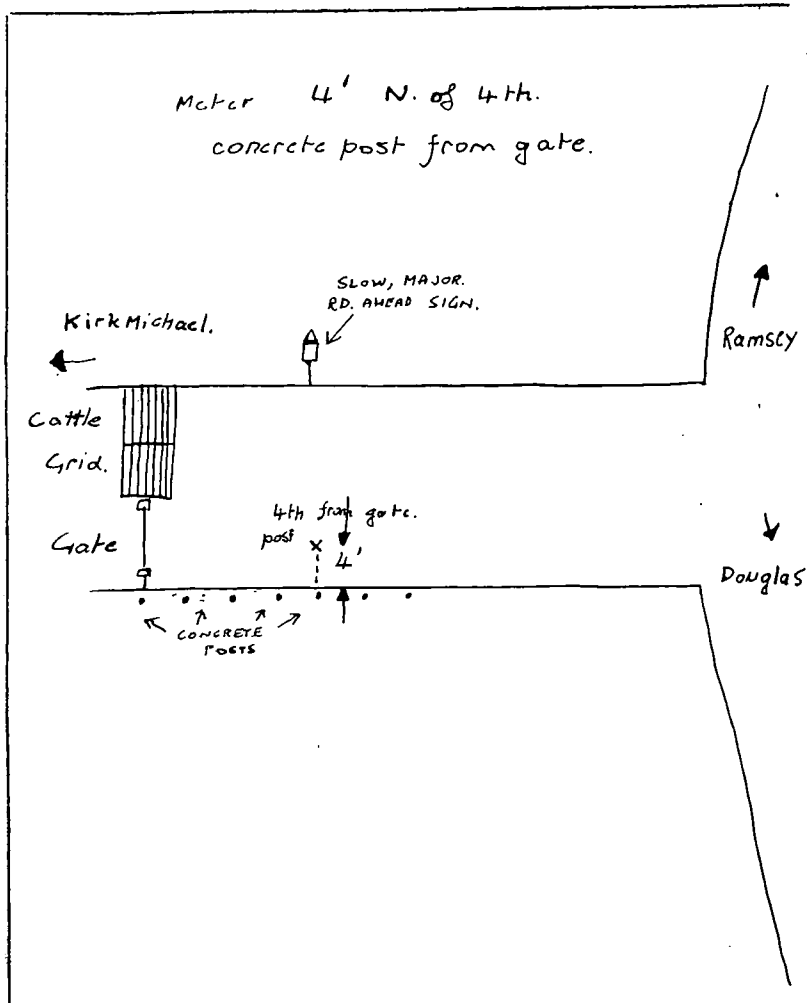 Meter 4' N. of 4th.
concrete post from gate.
SLOW, MAJOR.
RD. AHEAD SIGN.
KirkMichael.
Ramsey
Cattle
Grid.
4th from gate.
post x
4'
Gate
Douglas
CONCRETE
POSTS